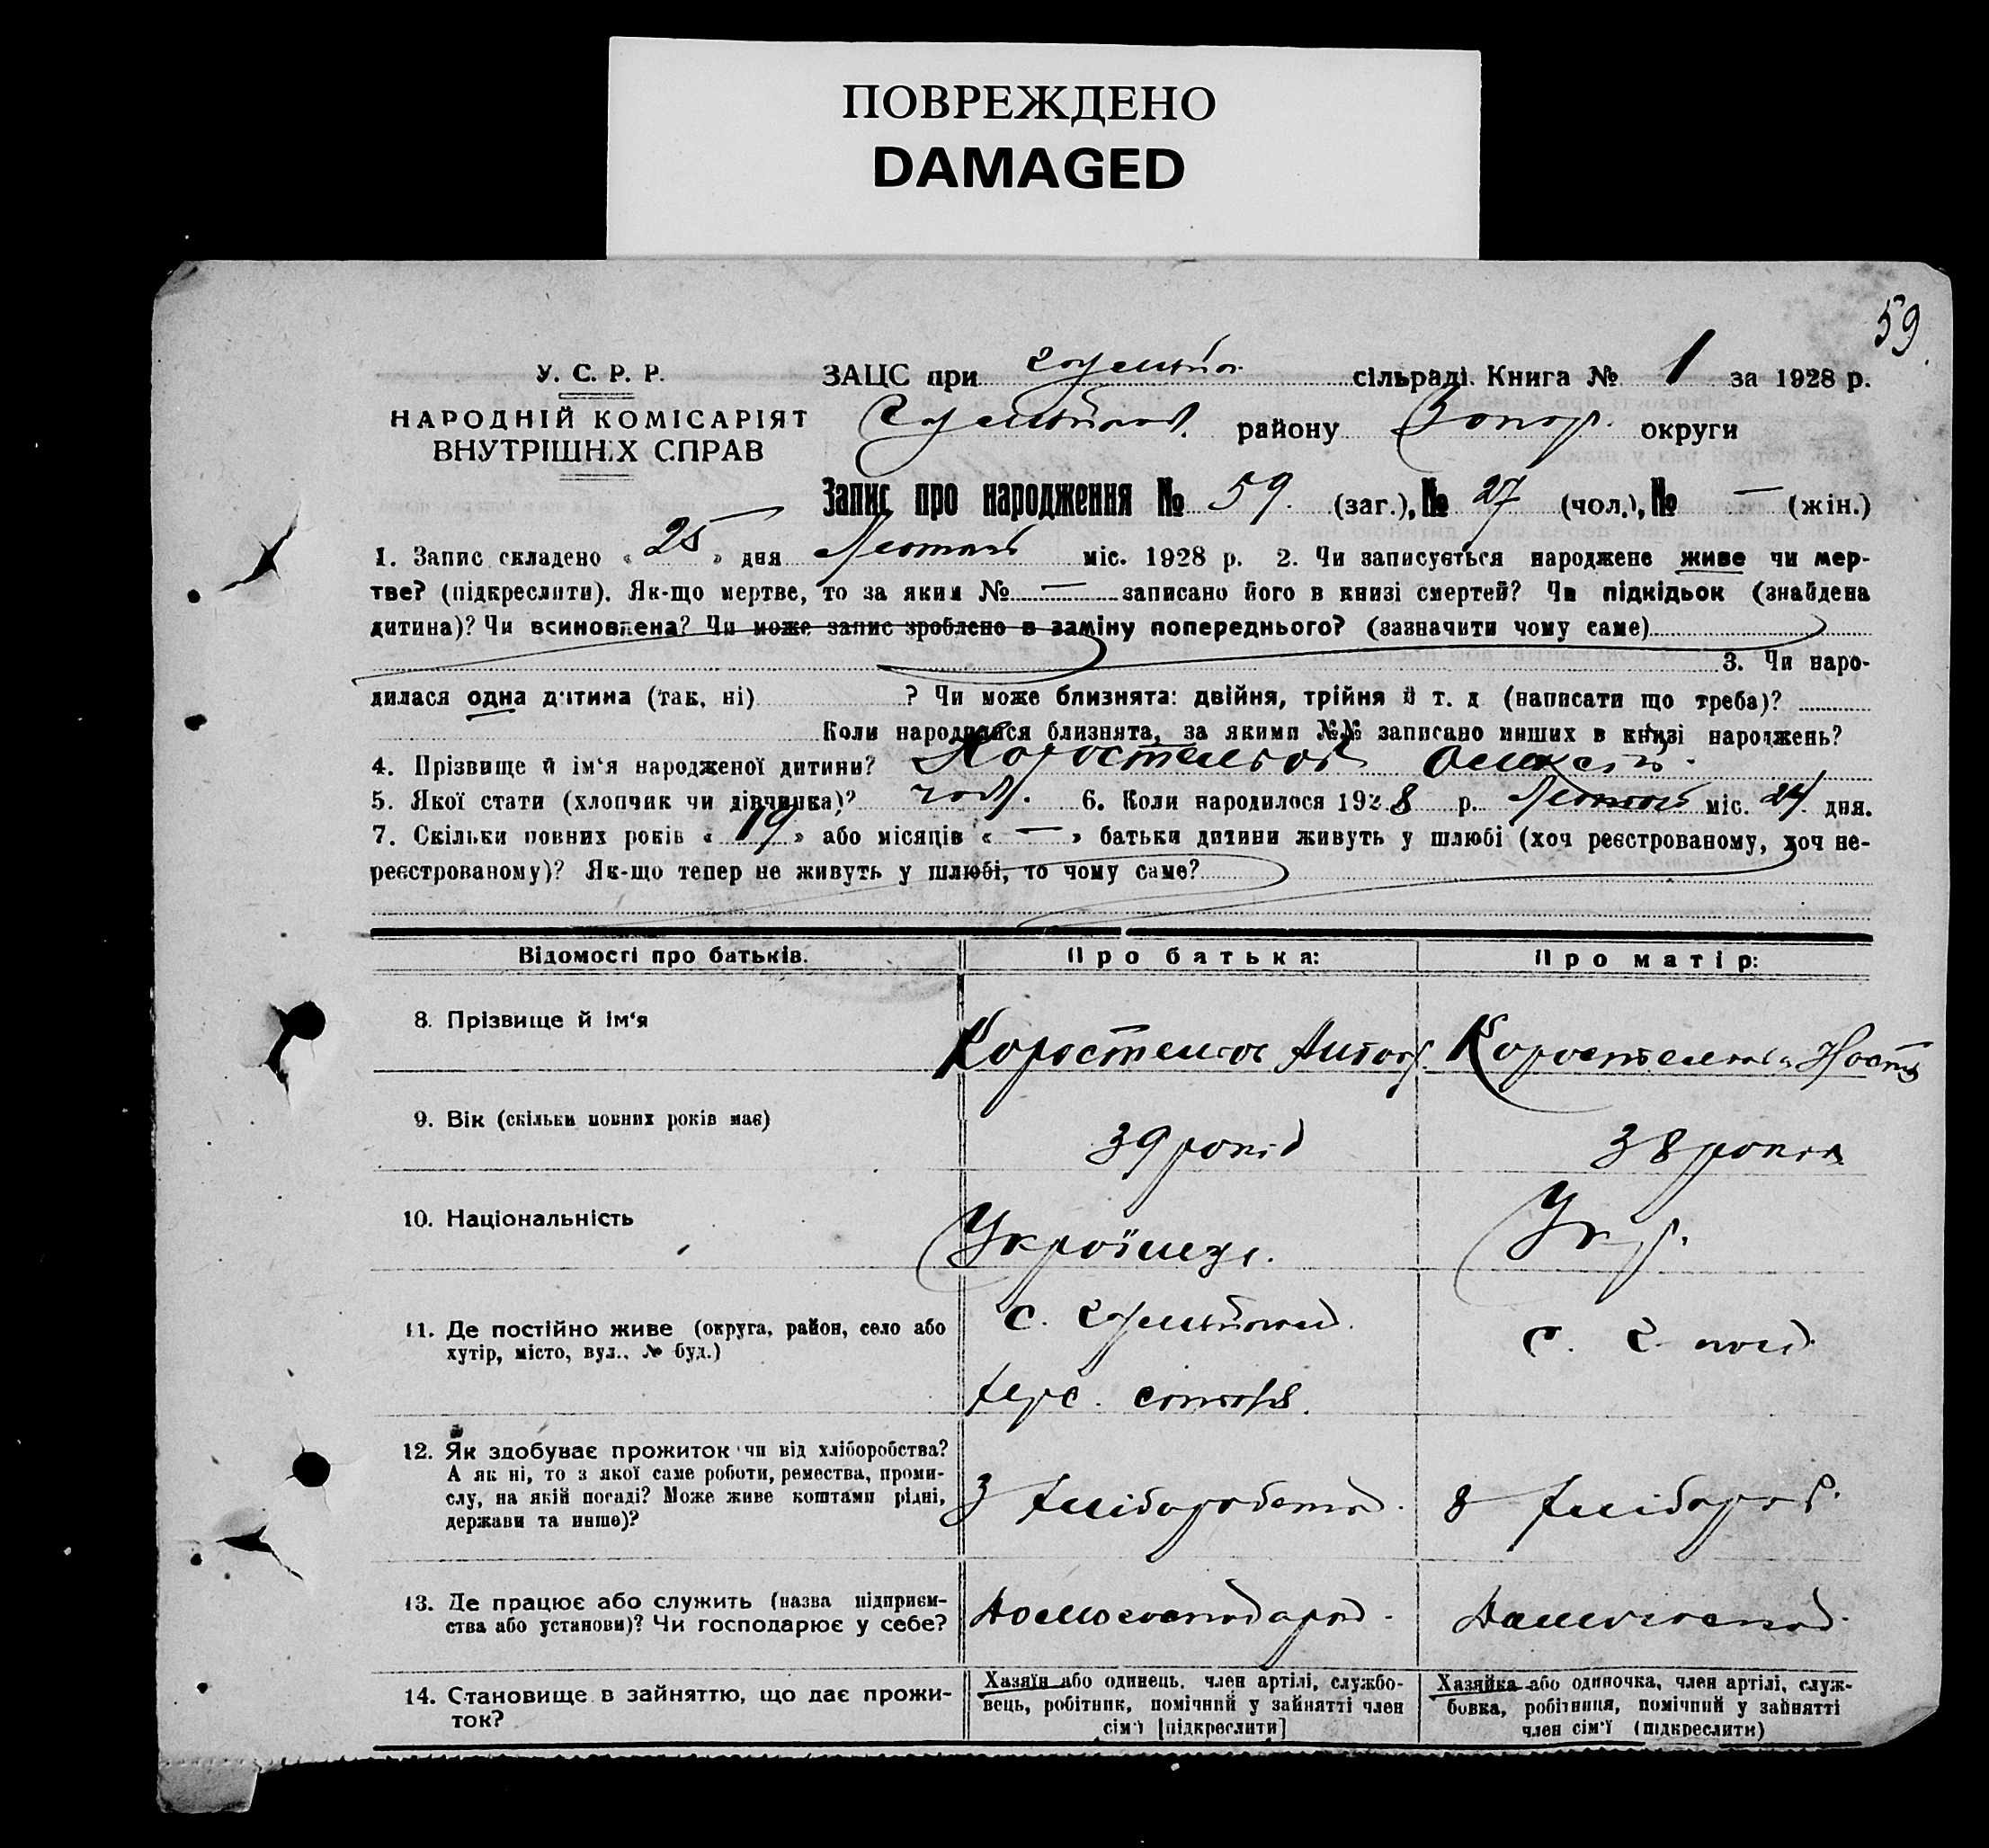 ПОВРЕЖДЕНО
DAMAGED
59
У. С. Р. Р.
НАРОДНІЙ КОМІСАРІЯТ
ВНУТРІШНІХ СПРАВ
ЗАЦС при сільраді. Книга № 1 за 1928 р.
району Запор. округи
Запис про народження № 59. (заг.), № 27 (чол.), № — (жін.)
1. Запис складено « 25 » дня Лютого міс. 1928 р. 2. Чи записується народжене живе чи мер-
тве? (підкреслити). Як-що мертве, то за яким № — записано його в книзі смертей? Чи підкідьок (знайдена
дитина)? Чи всиновлена? Чи може запис зроблено в заміну попереднього? (зазначити чому саме)
3. Чи наро-
дилася одна дитина (так, ні) ? Чи може близнята: двійня, трійня й т. д. (написати що треба)?
Коли народилися близнята, за якими №№ записано инших в книзі народжень?
4. Прізвище й ім'я народженої дитини? Коростельов Олексій.
5. Якої стати (хлопчик чи дівчинка)? чол. 6. Коли народилося 1928 р. Лютого міс. 24 дня.
7. Скільки повних років « 19 » або місяців « — » батьки дитини живуть у шлюбі (хоч реєстрованому, хоч не-
реєстрованому)? Як-що тепер не живуть у шлюбі, то чому саме?
Відомості про батьків. Про батька: Про матір:
8. Прізвище й ім'я Коростельов Коростельова Наст
9. Вік (скільки повних років має) 39 років 38 років
10. Національність Українец. Укр.
11. Де постійно живе (округа, район, село або
хутір, місто, вул., № буд.)
с.
с.
12. Як здобуває прожиток чи від хліборобства?
А як ні, то з якої саме роботи, ремества, проми-
слу, на якій посаді? Може живе коштами рідні,
держави та инше)?
З хліборобства. З хлібороб.
13. Де працює або служить (назва підприєм-
ства або установи)? Чи господарює у себе?
Домогосподар. Домогоспод.
14. Становище в зайняттю, що дає прожи-
ток?
Хазяїн або одинець, член артілі, службо-
вець, робітник, помічний у зайнятті член
сім'ї [підкреслити]
Хазяйка або одиночка, член артілі, служ-
бовка, робітниця, помічний у зайнятті
член сім'ї (підкреслити)